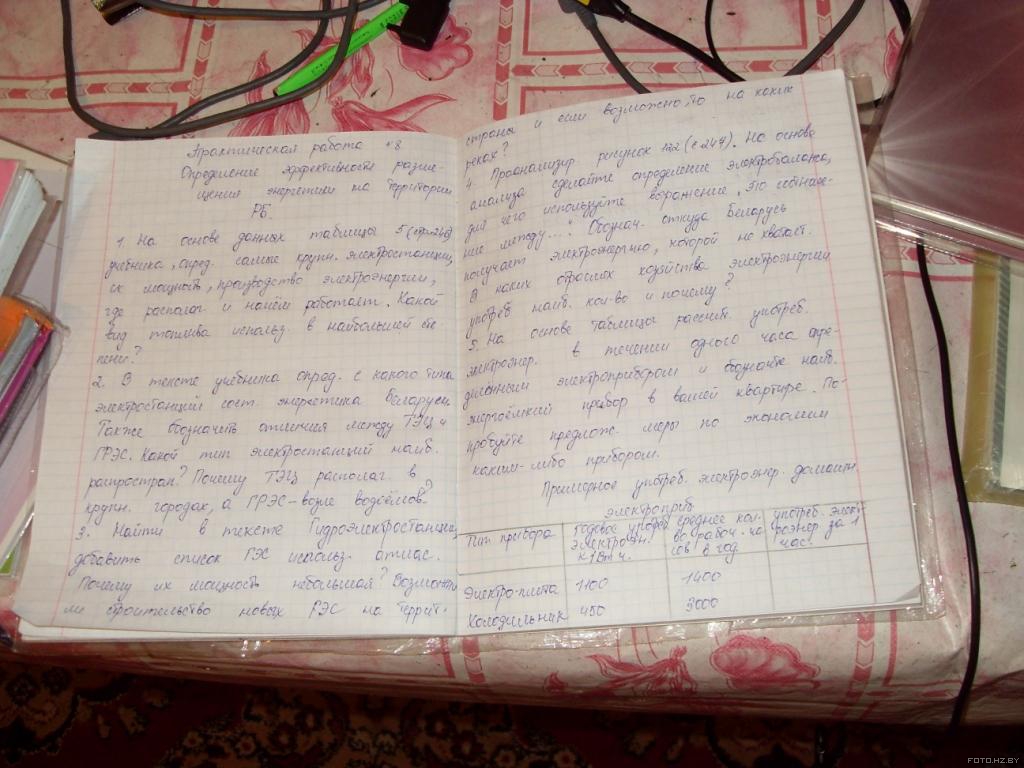 Практическая работа №8
Определение эффективности разме-
щения энергетики на территории
РБ.
1. На основе данных таблицы 5
учебника, опред. самые крупн. электростанции,
их мощность, производство электроэнергии,
где располаг и на чём работает. Какой
вид топлива использ. в наибольшей сте
пени?
2. В тексте учебника опред. с какого типа
электростанций сост. энергетика Беларуси
Также обозначить отличия между ТЭЦ и
ГРЭС. Какой тип электростанций наиб.
распростран? Почему ТЭЦ располаг. в
крупн. городах, а ГРЭС - возле водоёмов?
3. Найти в тексте Гидроэлектростанции,
добавить список ГЭС использ. атлас.
Почему их мощность небольшая? Возможн
ли строительство новых ГЭС на террит.
страны и если возможно, то на каких
реках?
4. Проанализир рисунок 122 (с 247). На основе
анализа сделайте определение электробаланса,
для чего используйте выражение „Это соотноше-
ние между...". Обознач. откуда Беларусь
получает электроэнергию, которой не хватает.
В каких отраслях хозяйства электроэнергии
употреб наиб. кол-во и почему?
5. На основе таблицы рассчит. употреб.
электроэнер. в течении одного часа опре-
деленным электроприбором и обозначьте наиб.
энергоёмкий прибор в вашей квартире. По-
пробуйте предлож. меры по экономии
каким-либо прибором.
Примерное употреб. электроэнер. домашн.
электроприб.
Тип прибора Годовое употреб электроэн. кВт ч. среднее кол-во рабоч. часов в год. употреб. электроэнер за 1 час.
Электро-плита 1100 1400
Холодильник 450 3000
FOTO.HZ.BY